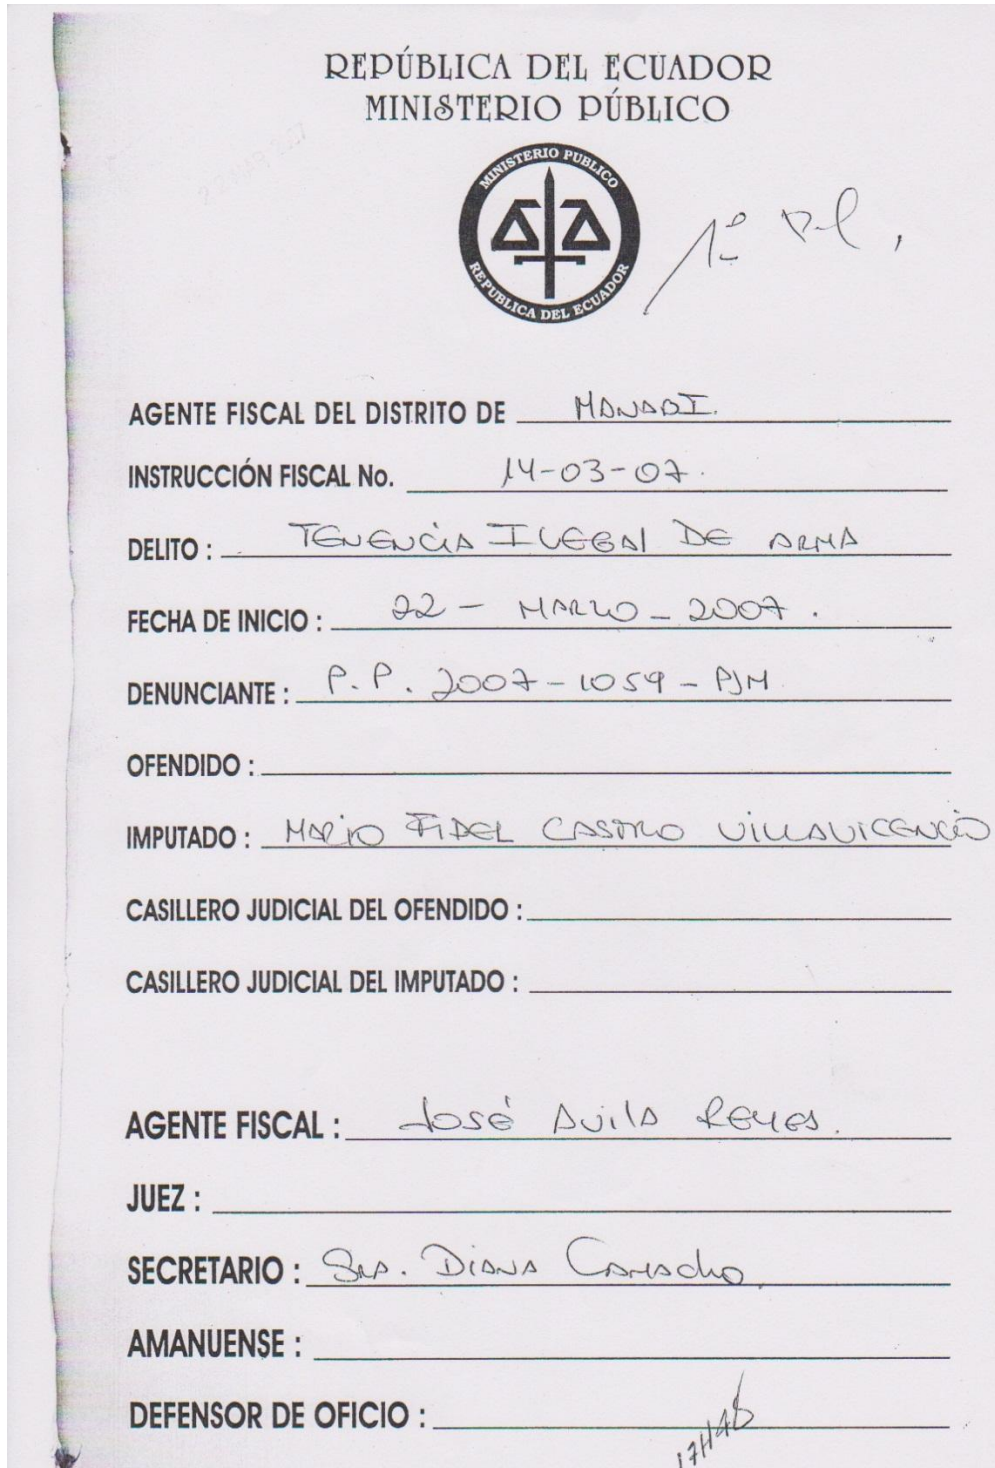 REPÚBLICA DEL ECUADOR
MINISTERIO PÚBLICO
MINISTERIO PUBLICO
REPUBLICA DEL ECUADOR
AGENTE FISCAL DEL DISTRITO DE MANABI.
INSTRUCCIÓN FISCAL No. 14-03-07.
DELITO : TENENCIA ILEGAL DE ARMA
FECHA DE INICIO : 22 - MARZO - 2007.
DENUNCIANTE : P.P. 2007-1059-PJM
OFENDIDO :
IMPUTADO : MARIO FIDEL CASTRO VILLAVICENCIO
CASILLERO JUDICIAL DEL OFENDIDO :
CASILLERO JUDICIAL DEL IMPUTADO :
AGENTE FISCAL : José Avila Reyes.
JUEZ :
SECRETARIO : Sra. Diana Camacho
AMANUENSE :
DEFENSOR DE OFICIO :
17H48